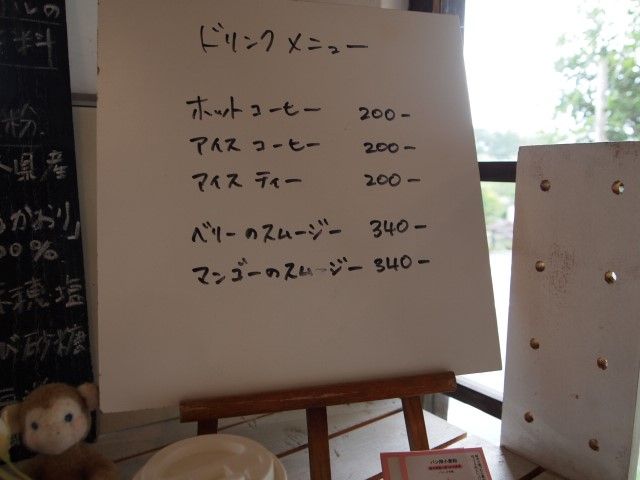 ドリンクメニュー
ホットコーヒー 200-
アイスコーヒー 200-
アイスティー 200-
ベリーのスムージー 340-
マンゴーのスムージー 340-
料
粉
県産
かおり」
00%
塩
砂糖